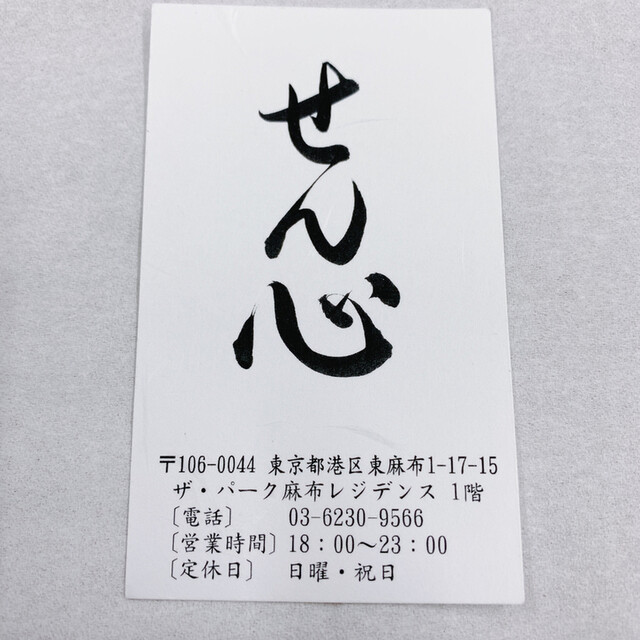 せん心
〒106-0044 東京都港区東麻布1-17-15
ザ・パーク麻布レジデンス 1階
〔電話〕 03-6230-9566
〔営業時間〕18：00〜23：00
〔定休日〕 日曜・祝日